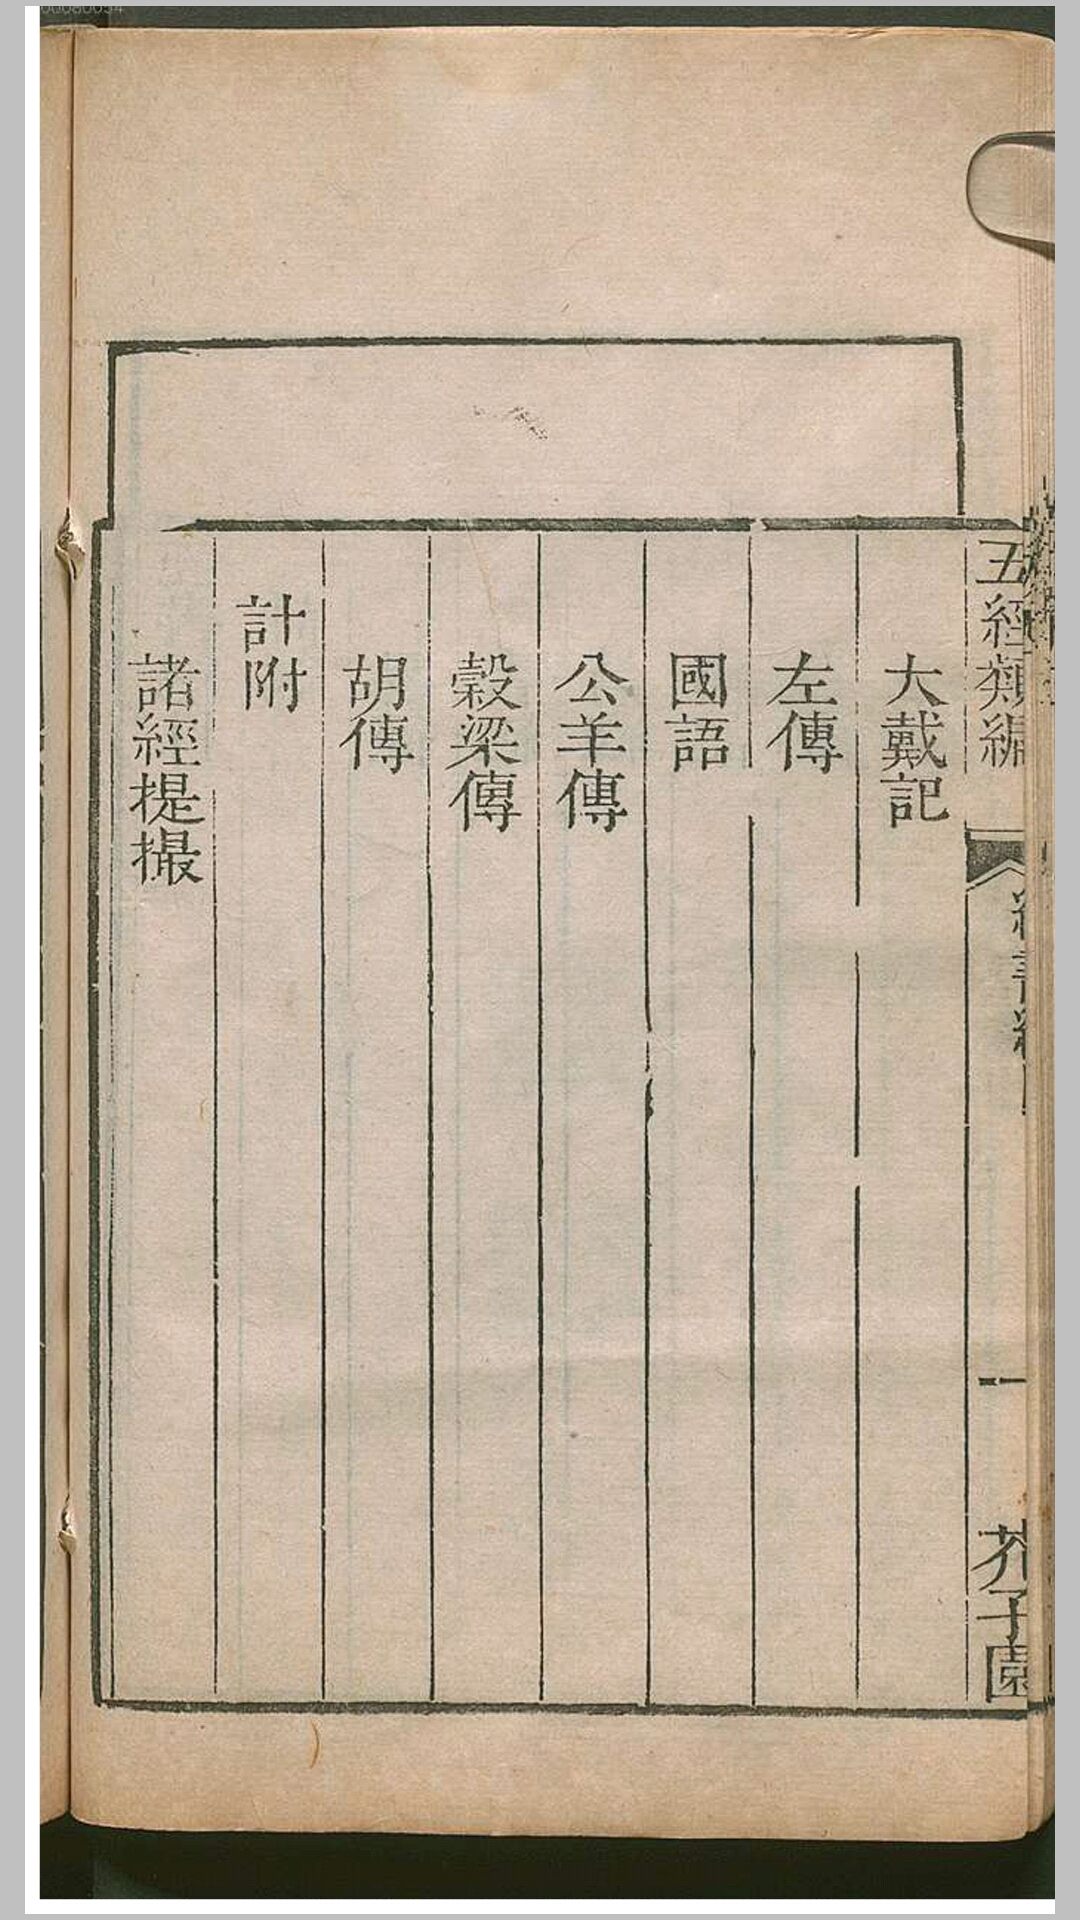 五經類編
一
芥子園
大戴記
左傳
國語
公羊傳
穀梁傳
胡傳
計附
諸經提撮